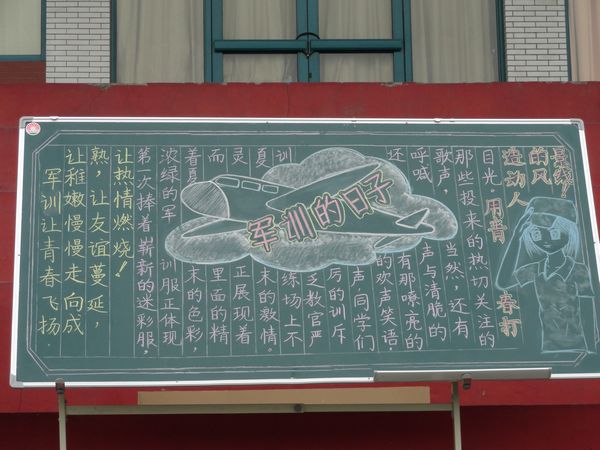 军训让青春飞扬.
让稚嫩慢慢走向成
熟,让友谊蔓延,
让热情燃烧!
第一次捧着崭新的迷彩服,
浓绿的军训服正体现
着夏末的色彩,
而里面的精
灵正展现着
夏末的激情。
训练场上不
乏教官严
厉的训斥
声同学们
的欢声笑语,
还有那嘹亮的
呼喊声与清脆的
歌声,当然,还有
那些投来的热切关注的
目光。用青春打
造动人
的风
景线!
军训的日子